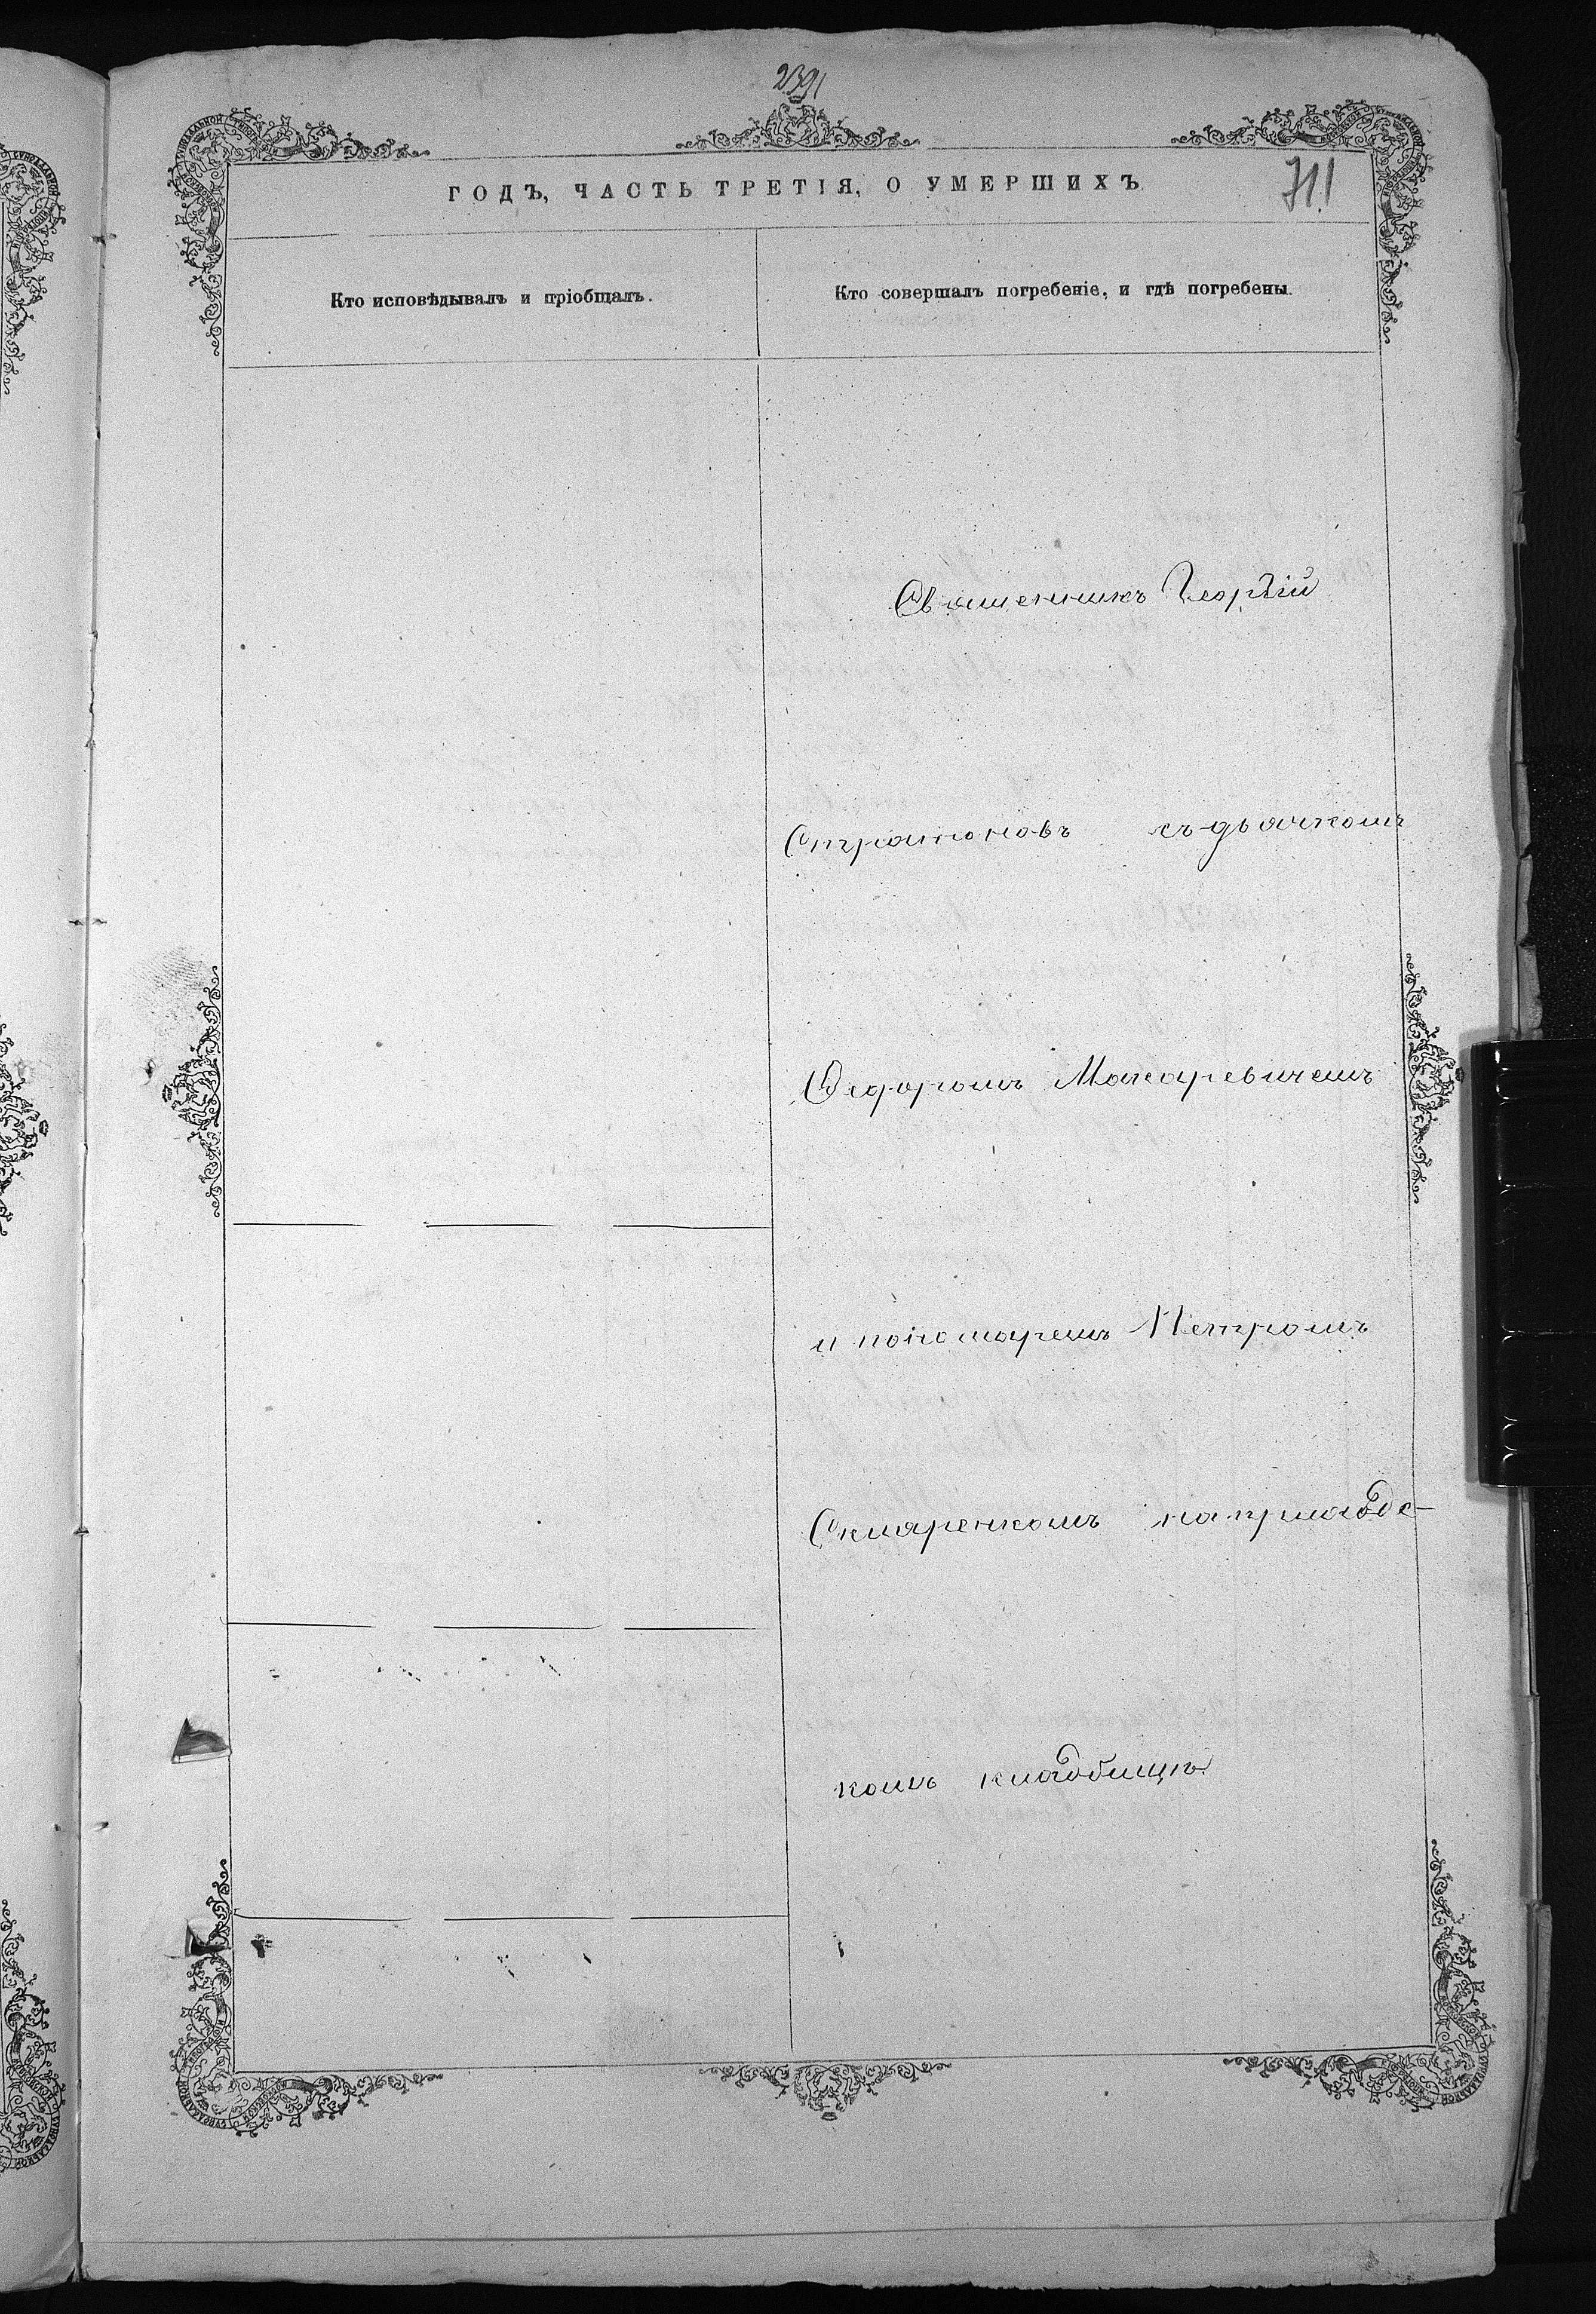 2391
711
ГОДЪ, ЧАСТЬ ТРЕТІЯ, О УМЕРШИХЪ
Кто исповѣдывалъ и пріобщалъ.
Кто совершалъ погребеніе, и гдѣ погребены.
Священникъ Георгій
Стратоновъ съ дьячкомъ
Ѳедоромъ Макаревичемъ
и пономаремъ Петромъ
на приходс-
комъ кладбищѣ